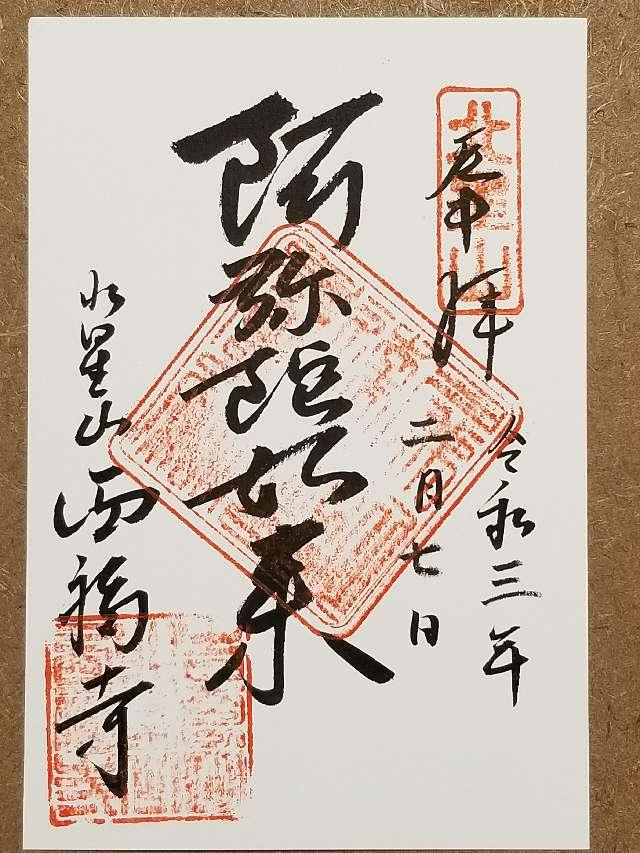 北星山
奉拝
令和三年
二月七日
阿弥陀如来
北星山西福寺